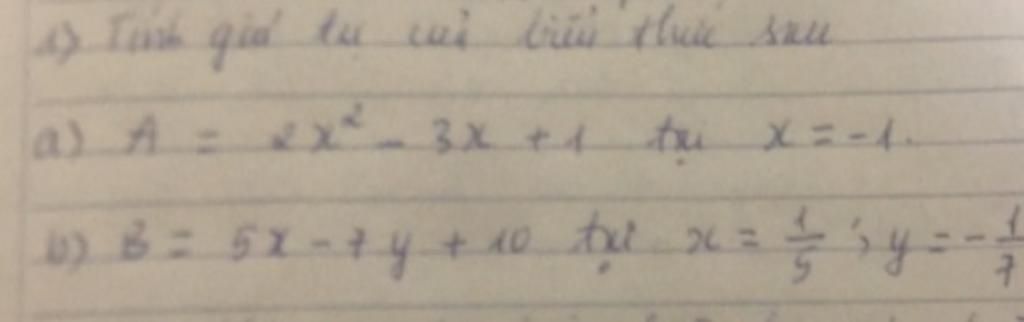 1) Tính giá trị của biểu thức sau
a) A = 2x² - 3x + 1 tại x = -1.
b) B = 5x - 7y + 10 tại x = 1/5 ; y = -1/7